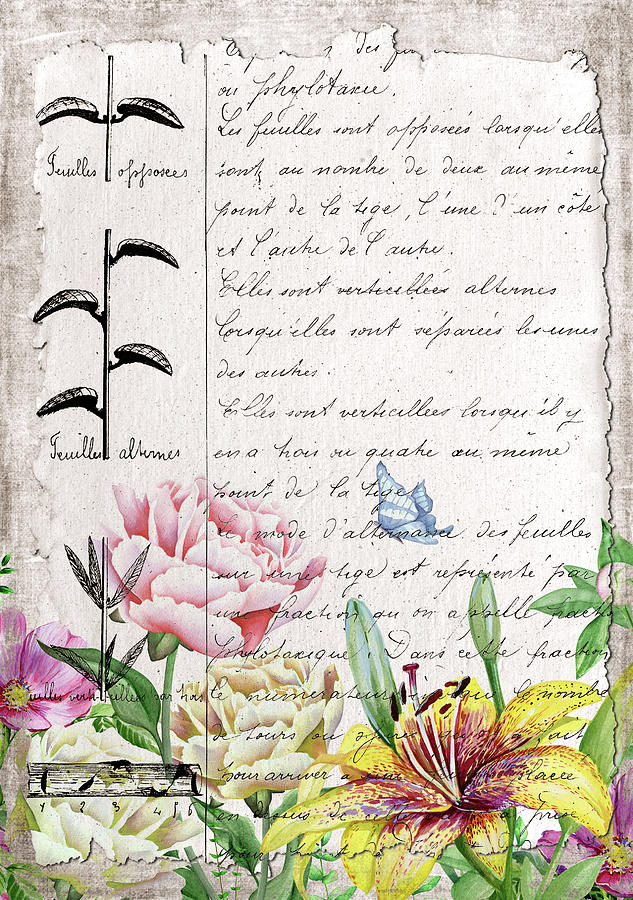 des
ou phylotaxie.
Les feuilles sont opposées lorsqu'elles
sont au nombre de deux au même
point de la tige, l'une d'un côté
et l'autre de l'autre.
Elles sont verticellées alternes
lorsqu'elles sont séparées les unes
des autres.
Elles sont verticellées lorsqu'il y
en a trois ou quatre au même
point de la tige
Le mode d'alternance des feuilles
sur une tige est représenté par
une fraction qu'on appelle fraction
phylotaxique. Dans cette fraction
le numérateur indique le nombre
de tours ou qu'il faut
pour arriver à une placée
en dessus de celle
pour
Feuilles opposées
Feuilles alternes
feuilles verticellées par trois
1 2 3 4 5 6